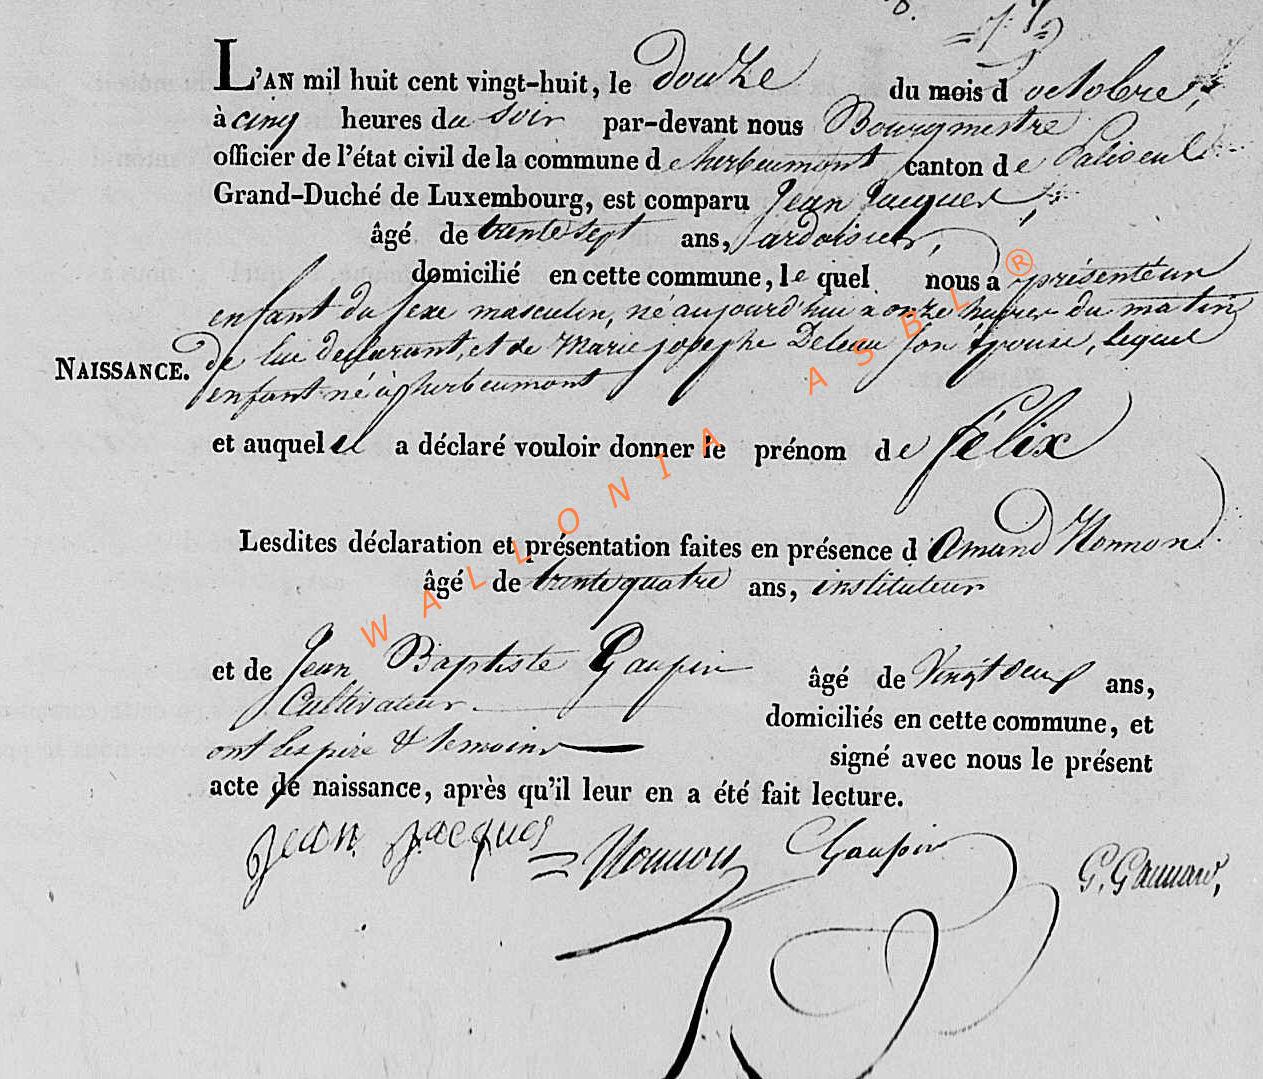 L'AN mil huit cent vingt-huit, le douze du mois d octobre,
à cinq heures du soir par-devant nous Bourgmestre
officier de l'état civil de la commune de herbeumont canton de Paliseul
Grand-Duché de Luxembourg, est comparu Jean Jacques,
âgé de trente sept ans, ardoisier,
domicilié en cette commune, le quel nous a présenté un
enfant du sexe masculin, né aujourd'hui a onze heures du matin
NAISSANCE. de lui declarant, et de Marie josephe Deleau son épouse, lequel
enfant né à herbeumont
et auquel il a déclaré vouloir donner le prénom de félix
Lesdites déclaration et présentation faites en présence d Amand Nonnon
âgé de trente quatre ans, instituteur
et de Jean Baptiste Gaupin âgé de Vingt deux ans,
Cultivateur domiciliés en cette commune, et
ont les père & temoins signé avec nous le présent
acte de naissance, après qu'il leur en a été fait lecture.
Jean Jacques Nonnon Gaupin
WALLONIA ASBL ®